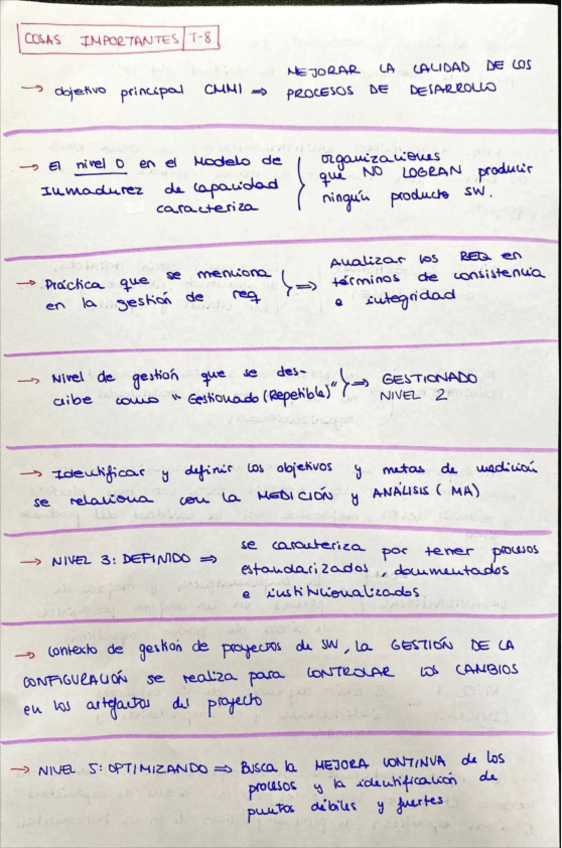 COSAS IMPORTANTES T-8
→ Objetivo principal CMMI ⇒ MEJORAR LA CALIDAD DE LOS
PROCESOS DE DESARROLLO
→ El nivel 0 en el Modelo de
Inmadurez de Capacidad
caracteriza
organizaciones
que NO LOGRAN producir
ningún producto SW.
→ Práctica que se menciona
en la gestión de req
⇒ Analizar los REQ en
términos de consistencia
e integridad
→ Nivel de gestión que se des-
cribe como "Gestionado (Repetible)"
⇒ GESTIONADO
NIVEL 2
→ Identificar y definir los objetivos y metas de medición
se relaciona con la MEDICIÓN y ANÁLISIS (MA)
→ NIVEL 3: DEFINIDO ⇒ se caracteriza por tener procesos
estandarizados, documentados
e institucionalizados
→ Contexto de gestión de proyectos de SW, la GESTIÓN DE LA
CONFIGURACIÓN se realiza para CONTROLAR LOS CAMBIOS
en los artefactos del proyecto
→ NIVEL 5: OPTIMIZANDO ⇒ Busca la MEJORA CONTINUA de los
procesos y la identificación de
puntos débiles y fuertes